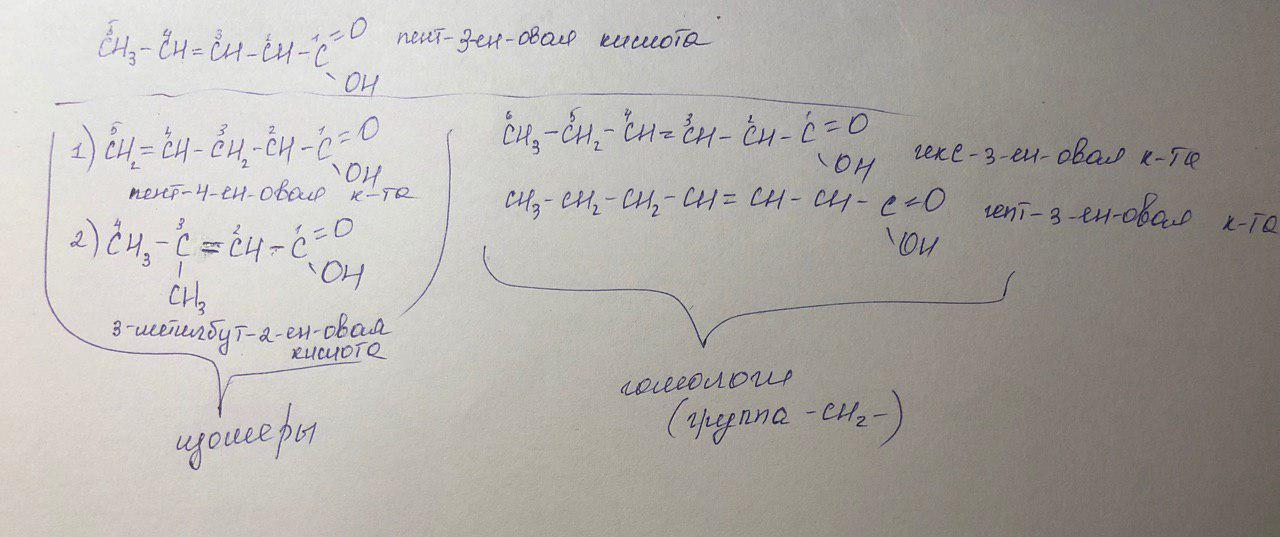 ⁵CH₃-⁴CH=³CH-²CH-¹C=O пент-3-ен-овая кислота
OH
1) ⁵CH₂=⁴CH-³CH₂-²CH-¹C=O
OH
пент-4-ен-овая к-та
2) ⁴CH₃-³C=²CH-¹C=O
OH
CH₃
3-метилбут-2-ен-овая
кислота
изомеры
⁶CH₃-⁵CH₂-⁴CH=³CH-²CH-¹C=O
OH
гекс-3-ен-овая к-та
CH₃-CH₂-CH₂-CH=CH-CH-C=O
OH
гепт-3-ен-овая к-та
гомологи
(группа -CH₂-)